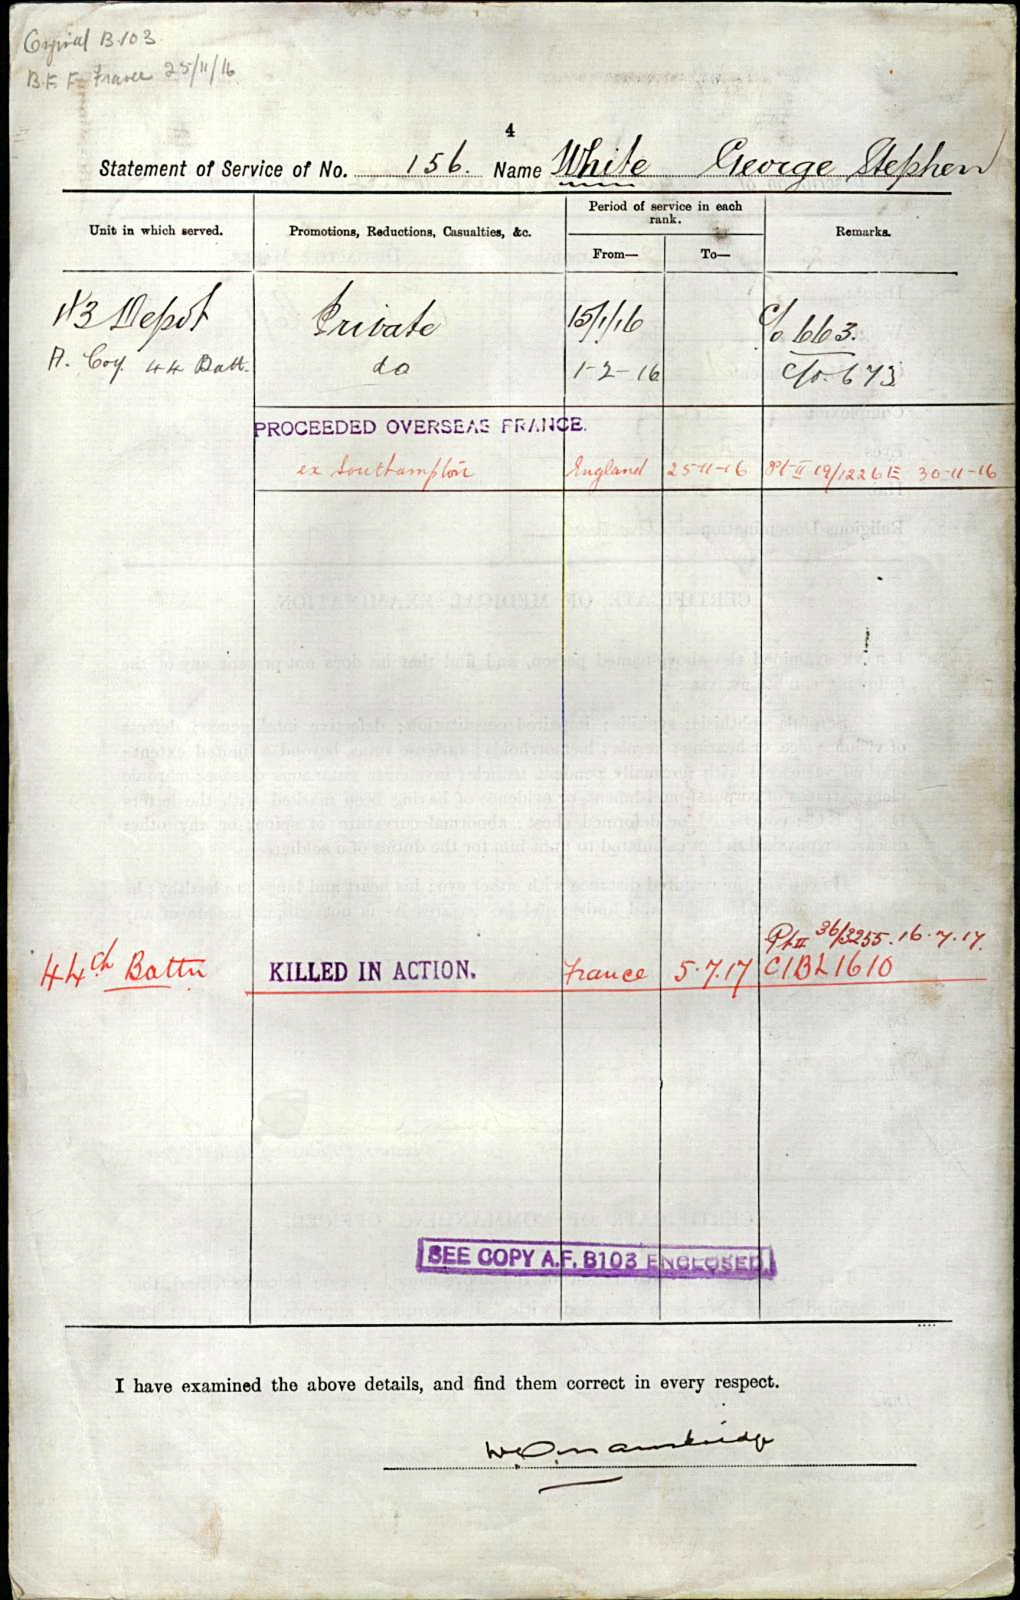 Copied B.103
B.E.F. France 25/11/16
4
Statement of Service of No. 156. Name White George Stephen
Unit in which served. Promotions, Reductions, Casualties, &c. Period of service in each rank. From— To— Remarks.
113 Depot Private 15/1/16 C/o 663.
A. Coy. 44 Batt. do 1-2-16 C/o. 673
PROCEEDED OVERSEAS FRANCE.
ex Southampton England 25-11-16 Pt II 19/1226 E 30-11-16
Pt II 36/3255. 16.7.17.
44th Battn KILLED IN ACTION. France 5.7.17 C1BL1610
SEE COPY A.F. B103 ENCLOSED.
I have examined the above details, and find them correct in every respect.